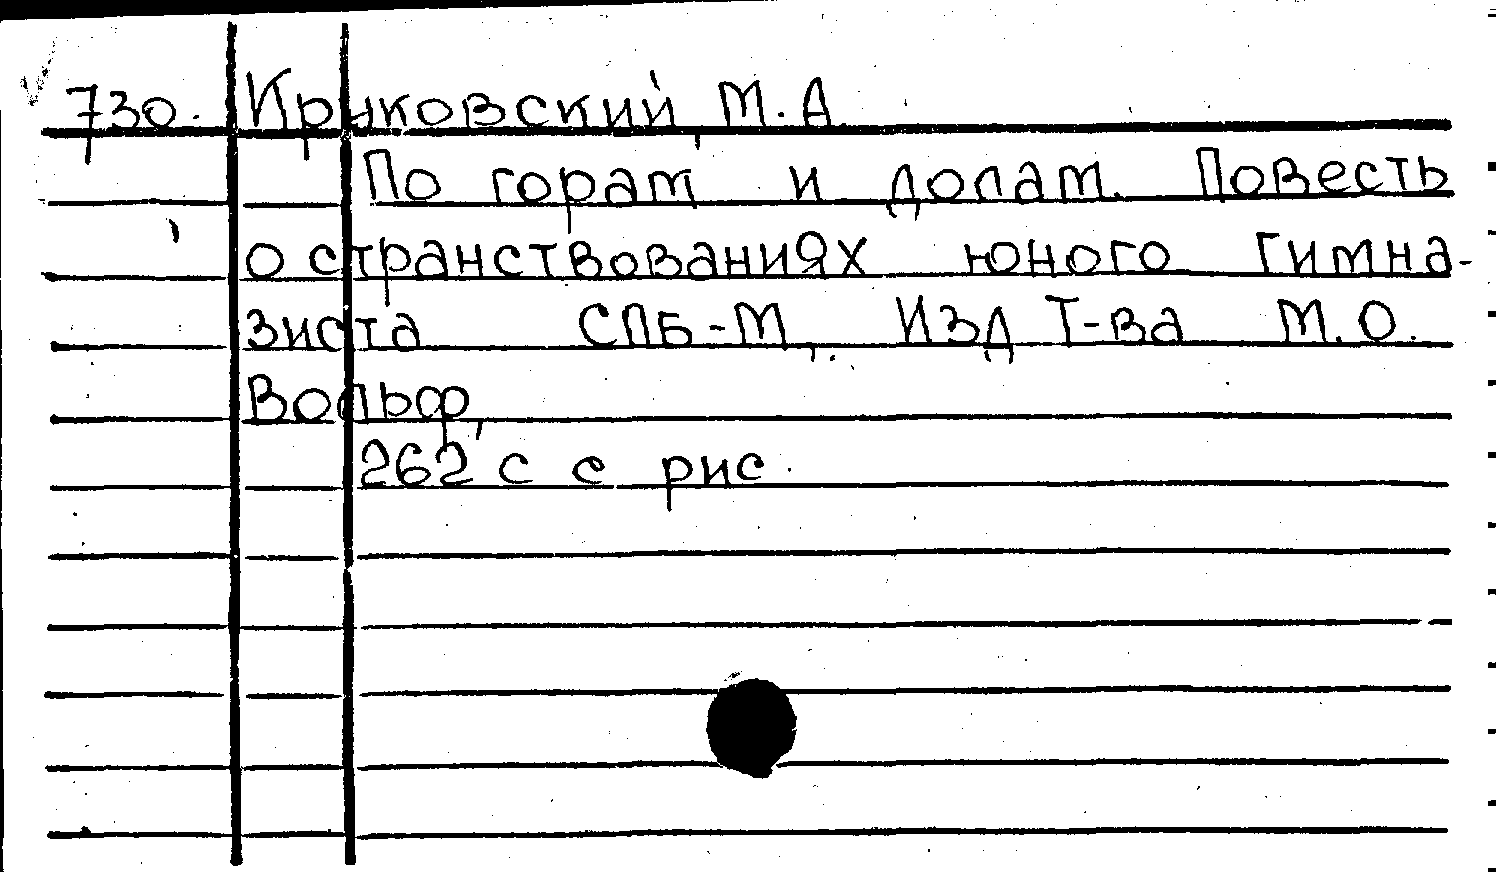 730. Круковский, М.А.
По горам и долам. Повесть
о странствованиях юного гимна-
зиста СПБ-М, Изд Т-ва М.О.
Вольф,
262 с с рис.